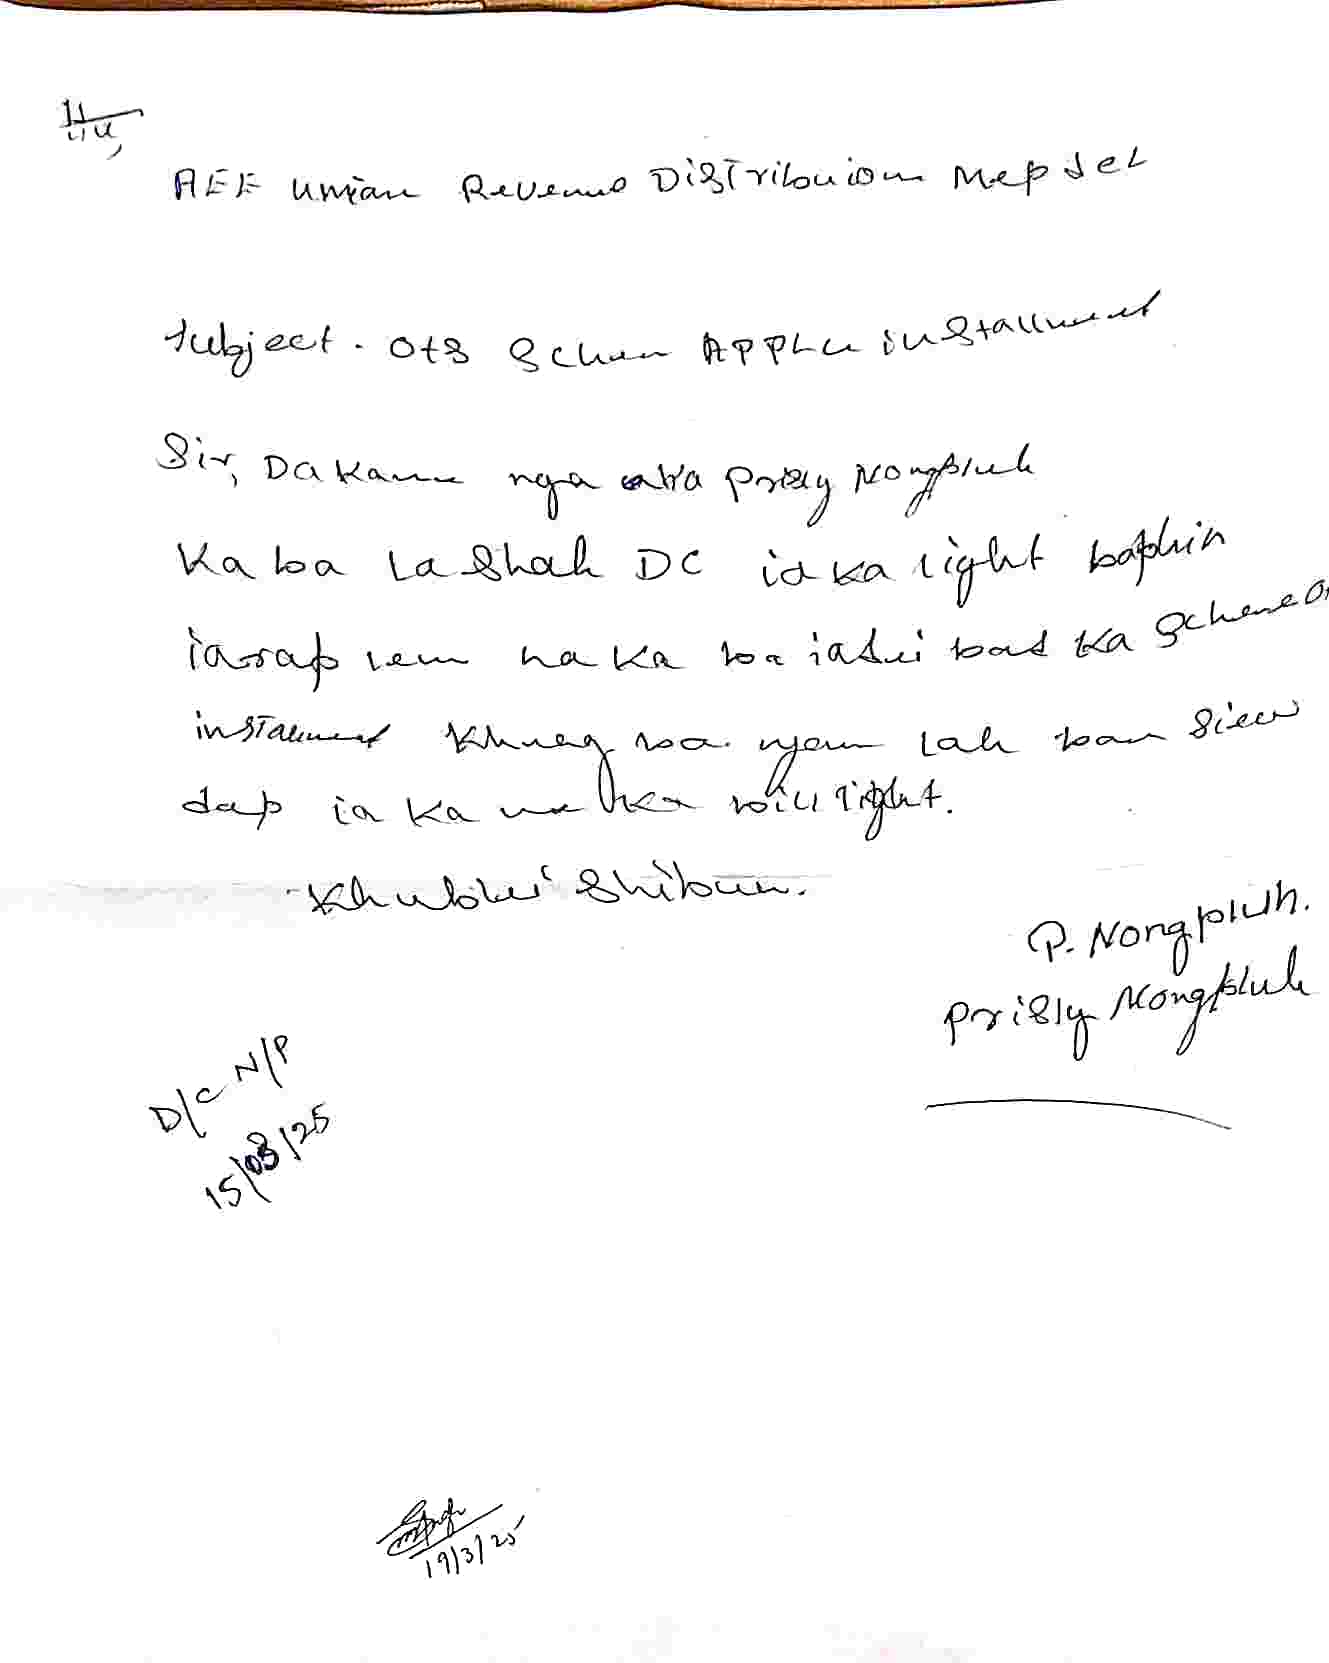 AEE Umiam Revenue Distribuion MepJeL
Subject. OTS Schem APPLu installment
Sir, Da Kane nga ka Prisly Nongpluh
Ka ba La Shah DC ia ka light baphin
iarap lem na ka ba iadei bad Ka Scheme
installment Khnag ba ngam lah ban Siew
dap ia ka bill light.
Khublei Shibun.
P. Nongpluh.
Prisly Nongpluh
D/C N/P
15/03/25
19/3/25